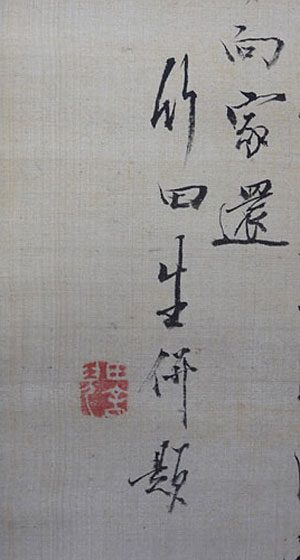 向家還
竹田生併題